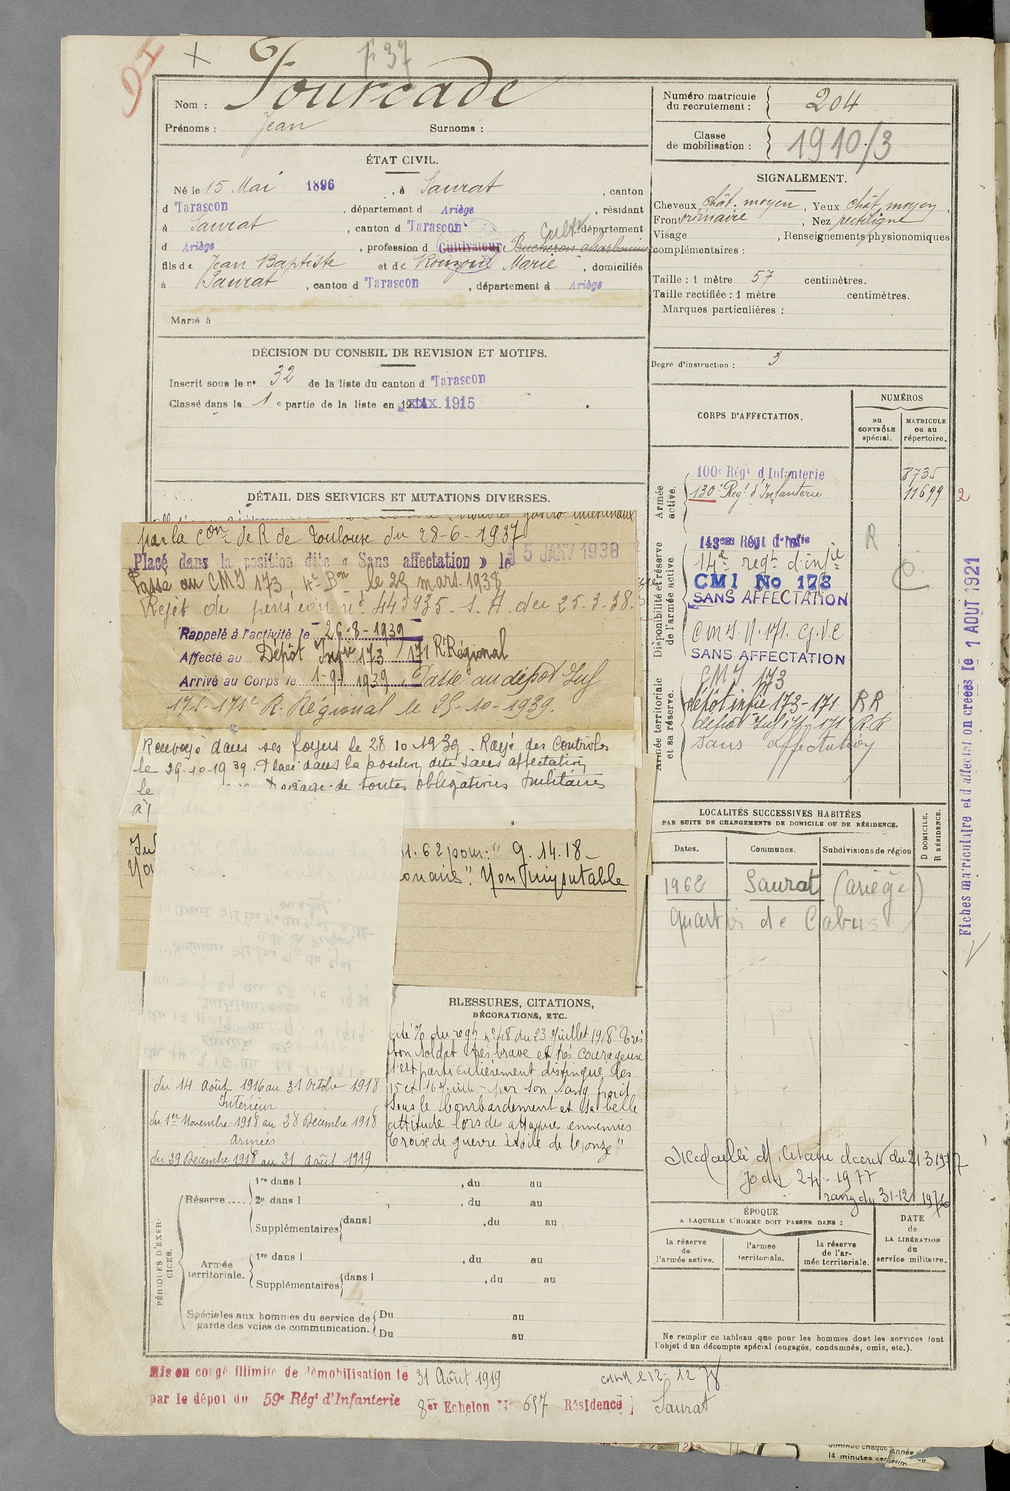 1 37
Nom : Fourcade
Prénoms : Jean Surnoms :
Numéro matricule du recrutement : 204
Classe de mobilisation : 1910/3
ÉTAT CIVIL.
Né le 15 Mai 1896 , à Saurat , canton
d Tarascon , département d Ariège , résidant
à Saurat , canton d Tarascon département
d Ariège , profession d Cultivateur Bucheron charbonnier Cultr
fils de Jean Baptiste et de Rouzoul Marie , domiciliés
à Saurat , canton d Tarascon , département d Ariège
Marié à
SIGNALEMENT.
Cheveux chât. moyen , Yeux chât. moyen ,
Front ordinaire , Nez rectiligne
Visage , Renseignements physionomiques
complémentaires :
Taille : 1 mètre 57 centimètres.
Taille rectifiée : 1 mètre centimètres.
Marques particulières :
Degré d'instruction : 3
DÉCISION DU CONSEIL DE REVISION ET MOTIFS.
Inscrit sous le n° 32 de la liste du canton d Tarascon
Classé dans la 1 e partie de la liste en 1915
DÉTAIL DES SERVICES ET MUTATIONS DIVERSES.
par la Con de R de Toulouse du 28-6-1937
Placé dans la position dite « Sans affectation » le 15 JANV 1938
Passé au CMI 173 4e Bon le 28 mars 1938
Rejet de pension n° 443935-1. A. du 25.3.38.
Rappelé à l'activité le 26-8-1939
Affecté au Dépôt Infie 173 / 171 R. Régional
Arrivé au Corps le 1-9-1939. Passé au dépôt Inf
171-171e R. Régional le 25-10-1939.
Renvoyé dans ses foyers le 28 10 1939. Rayé des Controles
le 29-10-1939. Placé dans la position dite sans affectation
le de toutes obligations militaires
11.62 pour : " 9.14.18 –
Non imputable
CORPS D'AFFECTATION.
NUMÉROS
au CONTRÔLE spécial.
MATRICULE ou au répertoire.
Armée active.
100e Régt d'Infanterie 8735
130e Regt d'Infanterie 11699 2
Disponibilité et réserve de l'armée active
143ème Régt d'Infie R
14e regt d'infie
CMI No 173
SANS AFFECTATION
CMI N. 171. G.V.C
SANS AFFECTATION
Armée territoriale et sa réserve.
CMI 173
dépôt infie 173-171 RR
dépôt Inf 171-171 R.R
Sans affectation
Fiches matriculaire et d'affectation créées le 1 AOUT 1921
LOCALITÉS SUCCESSIVES HABITÉES
PAR SUITE DE CHANGEMENTS DE DOMICILE OU DE RÉSIDENCE.
Dates. Communes. Subdivisions de région D DOMICILE, R RÉSIDENCE.
1962 Saurat (Ariège)
quartier de Cabus
BLESSURES, CITATIONS,
DÉCORATIONS, ETC.
Cité % du regt n° 48 du 23 Juillet 1918 Très
bon soldat très brave et très courageux
s'est particulièrement distingué les
15 et 16 Juillet par son sang froid
sous le bombardement et sa belle
attitude lors des attaques ennemies
Croix de guerre étoile de bronze "
du 14 Août 1916 au 31 Octobre 1918
Intérieur
du 1er Novembre 1918 au 28 Décembre 1918
Armées
du 29 Décembre 1918 au 31 Août 1919
Médaille Militaire décret du 21 3 1977
rang du 31-12
PÉRIODES D'EXERCICES.
Réserve .... 1re dans l , du au
2e dans l , du au
Supplémentaires dans l , du au
Armée territoriale. 1re dans l , du au
Supplémentaires dans l , du au
Spéciales aux hommes du service de garde des voies de communication. Du au
Du au
ÉPOQUE
A LAQUELLE L'HOMME DOIT PASSER DANS :
la réserve de l'armée active. l'armée territoriale. la réserve de l'armée territoriale.
DATE de LA LIBÉRATION du service militaire.
Ne remplir ce tableau que pour les hommes dont les services font
l'objet d'un décompte spécial (engagés, condamnés, omis, etc.).
Mis en congé illimité de démobilisation le 31 Août 1919
par le dépôt du 59e Régt d'Infanterie 8er Echelon No 657 Résidence Saurat
14 minutes